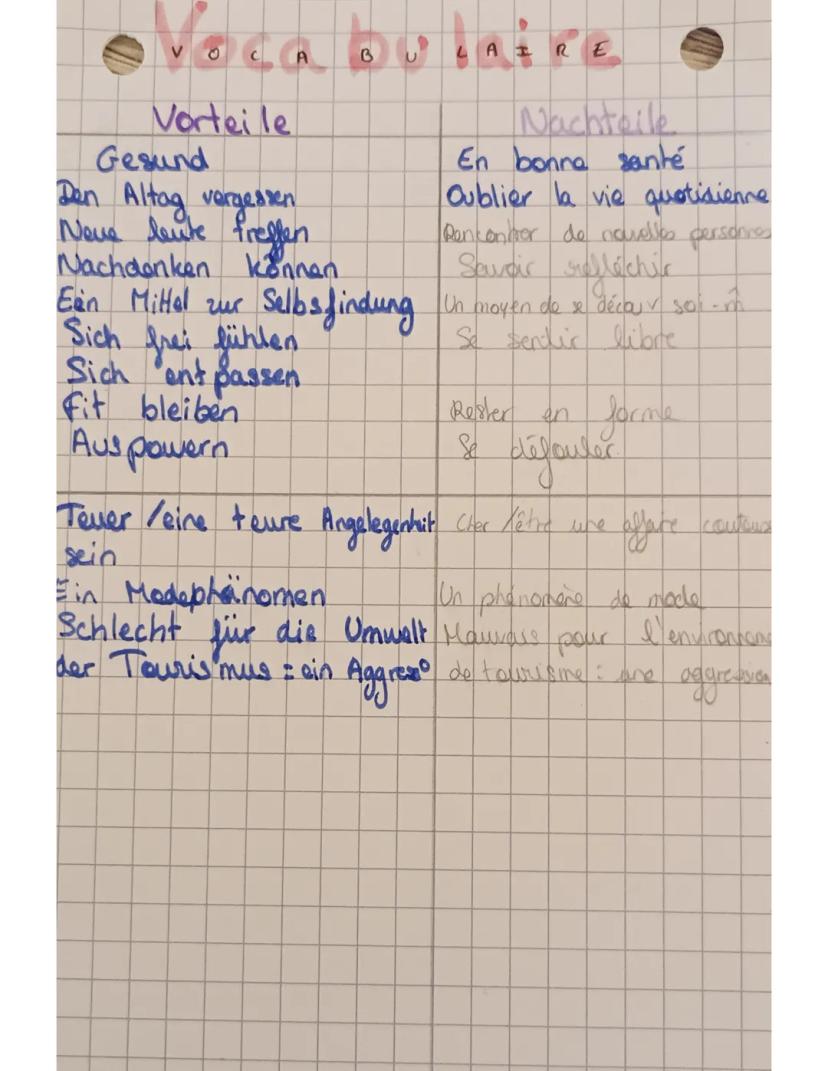 Vocabulaire
VOCABULAIRE
Vorteile Nachteile
Gesund En bonne santé
Den Altag vergessen Oublier la vie quotidienne
Neue leute treffen Rencontrer de nouvelles personnes
Nachdenken können Savoir réfléchir
Ein Mittel zur Selbsfindung Un moyen de se décou v soi-m̂
Sich frei fühlen Se sentir libre
Sich entpassen
Fit bleiben Rester en forme
Auspowern Se défouler.
Teuer /eine teure Angelegenheit Cher /être une affaire couteuse
sein
Ein Modephänomen Un phénomène de mode
Schlecht für die Umwelt Mauvais pour l'environnem
der Tourismus = ein Aggress° de tourisme : une aggression